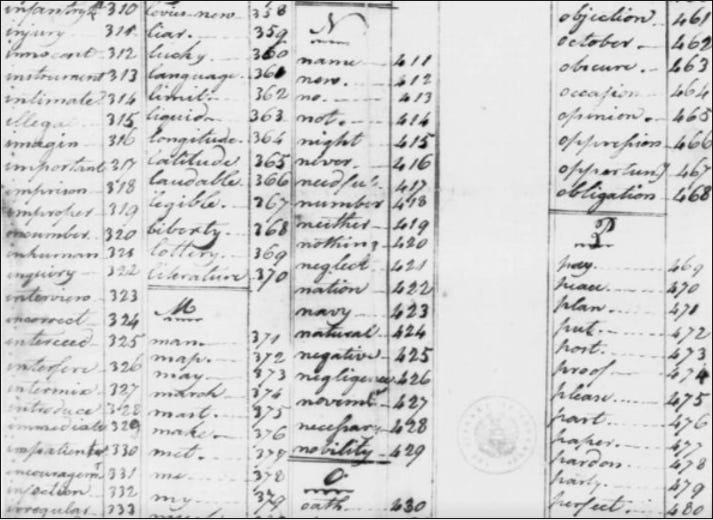 310
injury 311
innocent 312
instrument 313
intimate 314
illegal 315
imagin 316
important 317
imprison 318
improper 319
incumber 320
inhuman 321
inquiry 322
interview 323
incorrect 324
interceed 325
interfere 326
intermix 327
introduce 328
immediate 329
impatient 330
331
infection 332
irregular 333
358
liar 359
lucky 360
language 361
limit 362
liquid 363
longitude 364
latitude 365
laudable 366
legible 367
liberty 368
lottery 369
literature 370
M
man 371
map 372
may 373
march 374
mast 375
make 376
met 377
me 378
my 379
N
name 411
new 412
no 413
not 414
night 415
never 416
needful 417
number 418
neither 419
nothing 420
neglect 421
nation 422
navy 423
natural 424
negative 425
negligence 426
427
necessary 428
nobility 429
O
oath 430
objection 461
october 462
obscure 463
occasion 464
opinion 465
oppression 466
467
obligation 468
P
pay 469
peace 470
plan 471
put 472
port 473
proof 474
please 475
part 476
paper 477
pardon 478
party 479
perfect 480